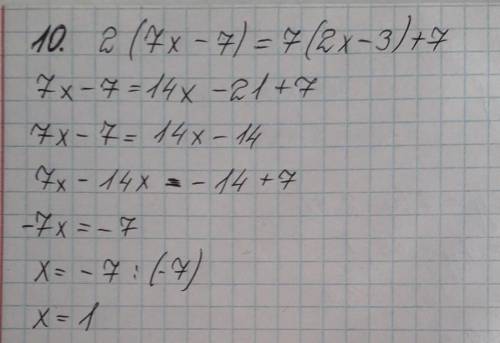 10. 2(7x-7)=7(2x-3)+7
7x-7=14x-21+7
7x-7=14x-14
7x-14x=-14+7
-7x=-7
x=-7:(-7)
x=1